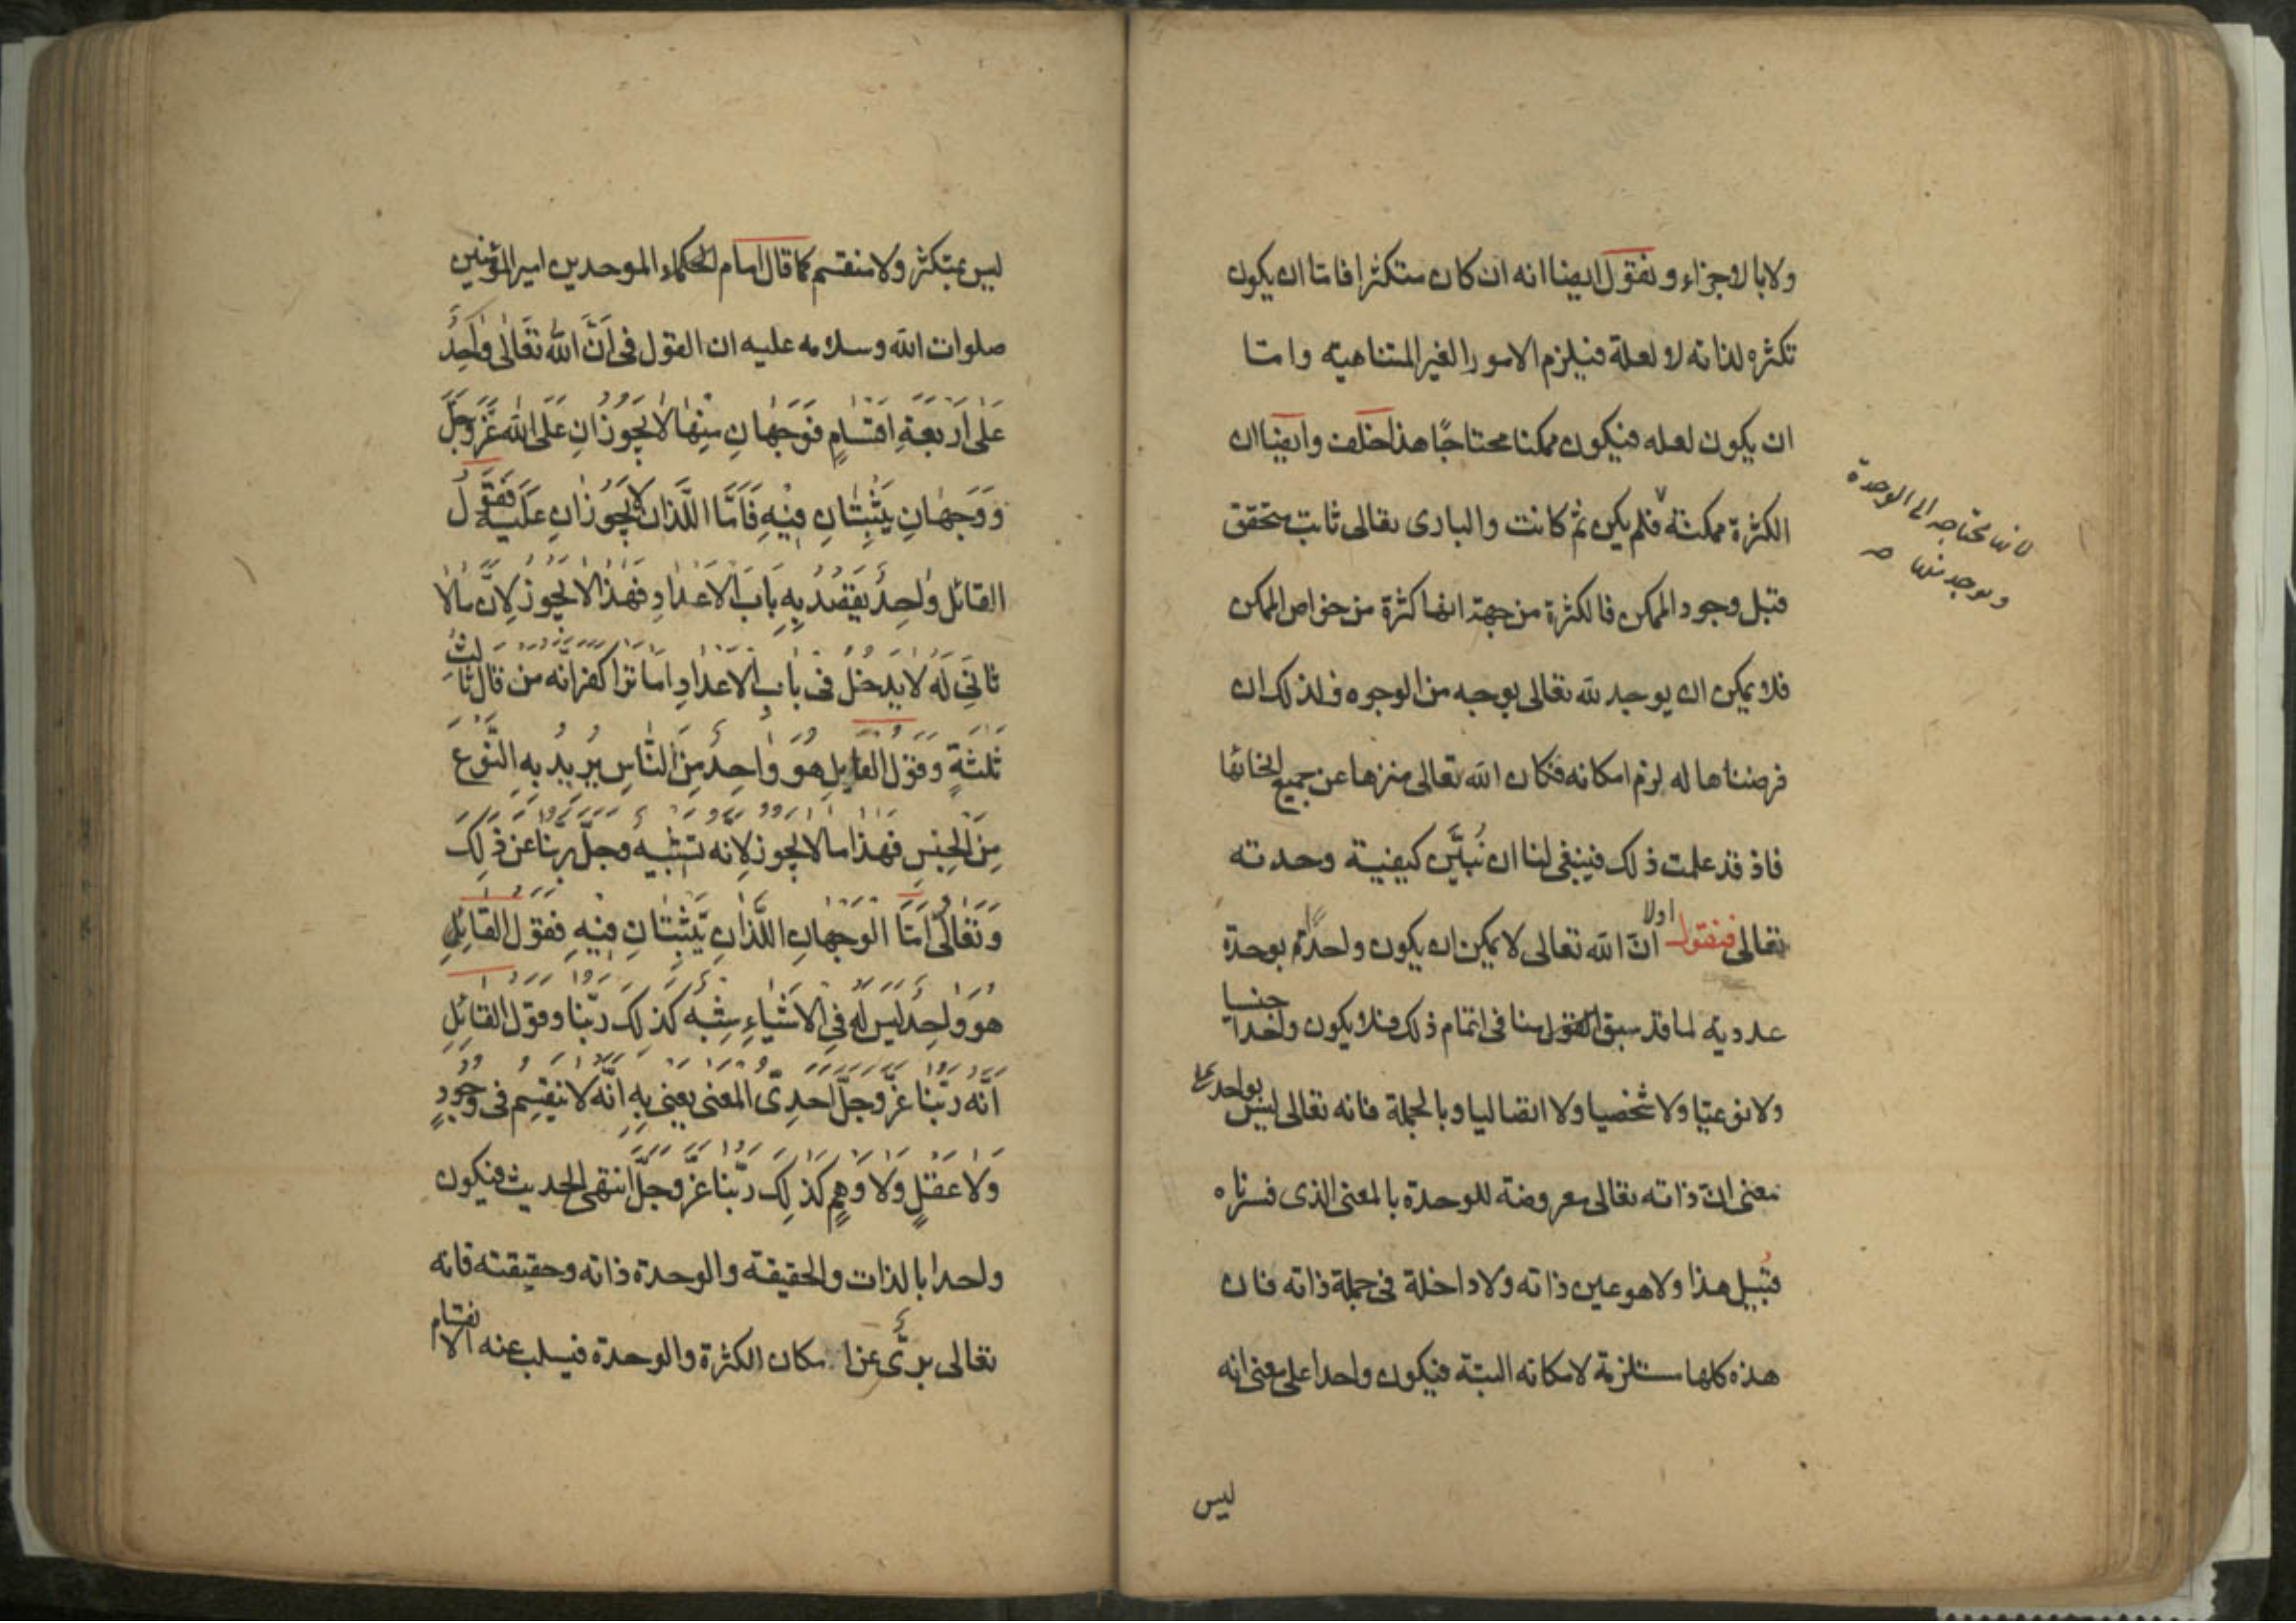 ولا بالاجزاء ونقول ايضا انه ان كان متكثرا فاما ان يكون
تكثره لذاته لا لعلة فيلزم الامور الغير المتناهية واما
ان يكون لعله فيكون ممكنا محتاجًا هذا خلف وايضا ان
الكثرة ممكنة فلم يكن ثم كانت والبارى تعالى ثابت متحقق
لانها محتاجه الى الوحدة
وتوجد منها صح
قبل وجود الممكن فالكثرة من جهة انها كثرة من خواص الممكن
فلا يمكن ان يوجد لله تعالى بوجه من الوجوه فلذلك ان
فرضناها له لزم امكانه فكان الله تعالى منزها عن جميع انحائها
فاذ قد علمت ذلك فينبغى لنا ان نُبَيَّن كيفية وحدته
تعالى فنقول اولا انّ الله تعالى لا يمكن ان يكون واحدًا بوحدة
عددية لما قد سبق القول منا فى اتمام ذلك فلا يكون واحدا جنسيا
ولا نوعيّا ولا شخصيا ولا اتصاليا وبالجملة فانه تعالى ليس بواحد على
معنى انّ ذاته تعالى معروضة للوحدة بالمعنى الذى فسرناه
قُبيل هذا ولا هو عين ذاته ولا داخلة فى جملة ذاته فان
هذه كلها مستلزمة لامكانه البتة فيكون واحدا على معنى انه
ليس
ليس بمتكثر ولا منقسم كما قال امام الحكماء الموحدين امير المؤمنين
صلوات الله وسلامه عليه ان القول فى اَنَّ اللّٰهَ تَعَالٰى وٰاحِدٌ
عَلٰى اَرْبَعَةِ اَقْسٰامٍ فَوَجْهٰانِ مِنْهٰا لٰا يَجُوزٰانِ عَلَى اللّٰهِ عَزَّ وَجَلَّ
وَوَجْهٰانِ يَثْبِتٰانِ فِيْهِ فَاَمَّا اللَّذٰانِ لٰا يَجُوزٰانِ عَلَيْهِ فَقَوْلُ
القٰائل وٰاحِدٌ يَقْصُدُ بِهِ بَابَ الْاَعْدٰادِ فَهٰذٰا لٰا يَجُوزُ لِاَنَّ مٰا لٰا
ثانِىَ لَهُ لٰا يَدخُلُ فى بٰابِ الْاَعْدٰادِ اَمٰا تَرٰى كَفَرَ اَنَّهُ مَنْ قٰالَ ثٰالِثُ
ثَلٰثَةٍ وَقَوْلُ القٰايِلِ هُوَ وٰاحِدٌ مِنَ النّٰاسِ يُرِيدُ بِهِ النَّوْعَ
مِنَ الْجِنْسِ فَهٰذٰا مٰا لٰا يَجُوزُ لِاَنَّهُ تَشْبِيهٌ وَجَلَّ رَبُّنٰا عَنْ ذٰلِكَ
وَتَعٰالٰى اَمَّا الْوَجْهٰانِ اللَّذٰانِ يَثْبِتٰانِ فِيْهِ فَقَوْلُ القٰائِلِ
هُوَ وٰاحِدٌ لَيْسَ لَهُ فِى الْاَشْيٰاءِ شِبْهٌ كَذٰلِكَ رَبُّنٰا وَقَوْلُ القٰائِلِ
اَنَّهُ رَبُّنٰا عَزَّ وَجَلَّ اَحَدِىُّ الْمَعْنٰى يَعْنِى بِهِ اَنَّهُ لٰا يَنْقَسِمُ فى وُجُودٍ
وَلٰا عَقْلٍ وَلٰا وَهْمٍ كَذٰلِكَ رَبُّنٰا عَزَّ وَجَلَّ انتهى الحديث فيكون
واحدا بالذات والحقيقة والوحدة ذاته وحقيقته فانه
تعالى برىّ عن امكان الكثرة والوحدة فيسلب عنه الانقسام